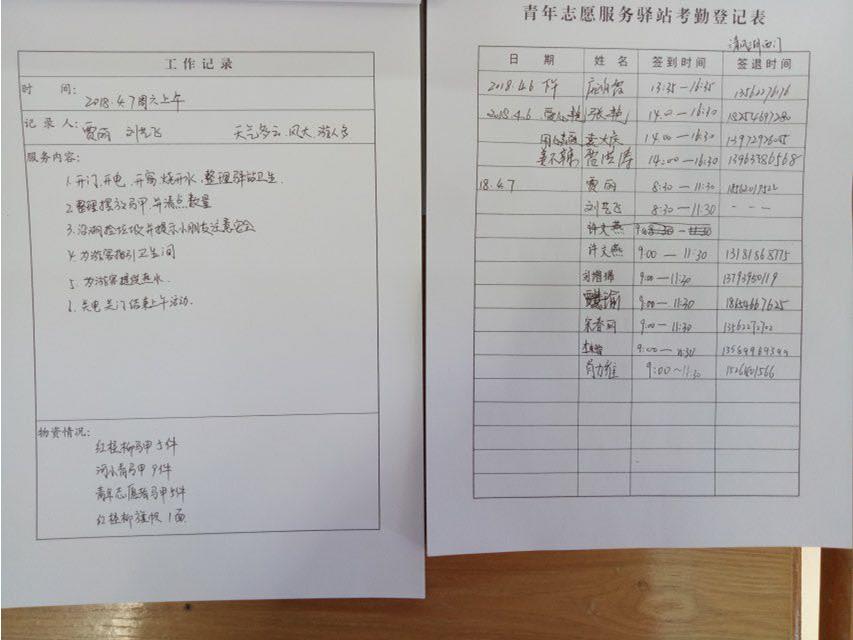 工作记录
时 间:
2018.4.7周六上午
记录人: 贾丽 刘艺飞 天气多云,风大,游人多
服务内容:
1.开门,开电,开窗,烧开水,整理驿站卫生.
2.整理摆放马甲,并清点数量
3.沿湖捡垃圾并提示小朋友注意安全
4.为游客指引卫生间
5.为游客提供热水.
6.关电关门结束上午活动.
物资情况:
红柽柳马甲5件
河小青马甲9件
青年志愿者马甲5件
红柽柳旗帜1面
青年志愿服务驿站考勤登记表
清风湖西门
日 期 姓 名 签到时间 签退时间
2018.4.6 下午 13:35—16:35
2018.4.6 张艳 14:00—16:30 18254697280
14:00—16:30
14:00—16:30 13963386568
18.4.7 贾丽 8:30—11:30
刘艺飞 8:30—11:30 - - -
许文燕
许文燕 9:00—11:30 13181868775
9:00—11:30
9:00—11:30 18654667625
宋春丽 9:00—11:30 13562272702
9:00—11:30
9:00~11:30